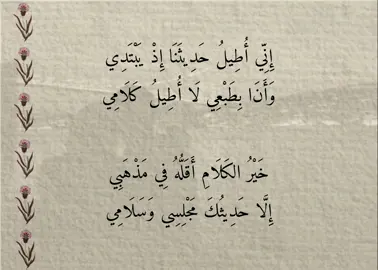 إِنِّي أُطِيلُ حَدِيثَنَا إِذْ يَبْتَدِي
وَأَنَا بِطَبْعِي لَا أُطِيلُ كَلَامِي
خَيْرُ الكَلَامِ أَقَلُّهُ فِي مَذْهَبِي
إِلَّا حَدِيثُكَ مَجْلِسِي وَسَلَامِي